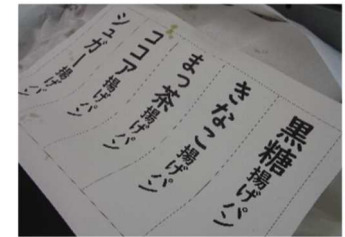 黒糖揚げパン
きなこ揚げパン
まっ茶揚げパン
ココア揚げパン
シュガー揚げパン